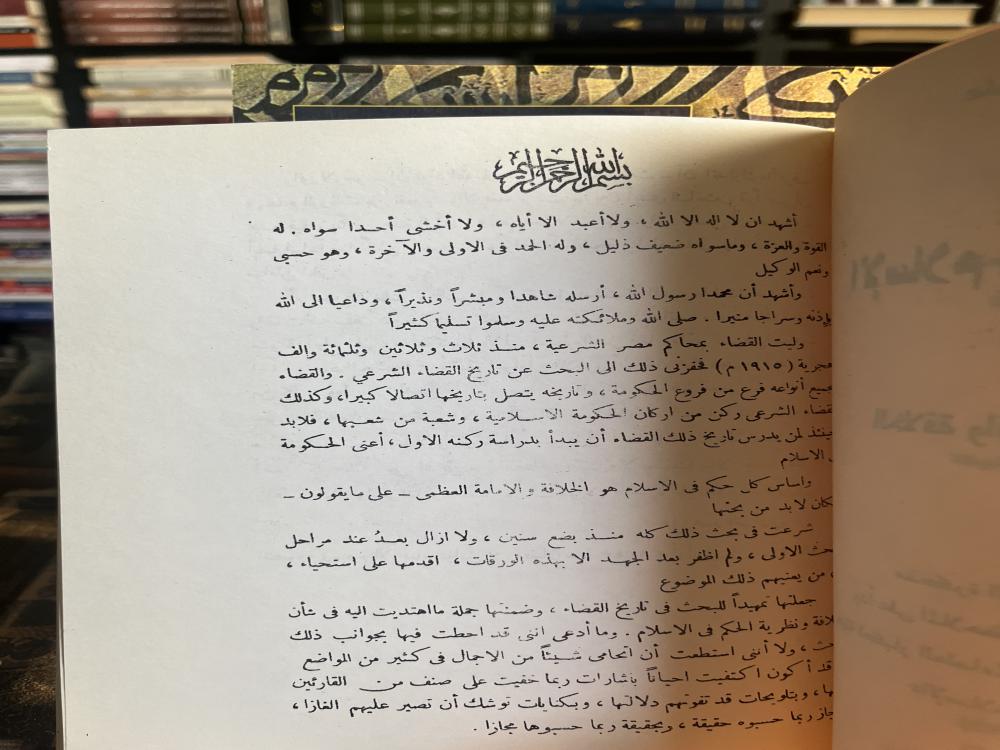 بسم الله الرحمن الرحيم
أشهد ان لا اله الا الله ، ولا أعبد الا أياه ، ولا أخشى أحدا سواه . له
القوة والعزة ، وماسواه ضعيف ذليل ، وله الحمد فى الاولى والآخرة ، وهو حسبى
ونعم الوكيل
وأشهد أن محمدا رسول الله ، أرسله شاهدا ومبشراً ونذيراً ، وداعيا الى الله
بإذنه وسراجا منيرا . صلى الله وملائكته عليه وسلموا تسليما كثيراً
وليت القضاء بمحاكم مصر الشرعية ، منذ ثلاث وثلاثين وثلثمائة والف
هجرية (١٩١٥ م) فحفزنى ذلك الى البحث عن تاريخ القضاء الشرعي . والقضاء
بجميع أنواعه فرع من فروع الحكومة ، وتاريخه يتصل بتاريخها اتصالا كبيرا، وكذلك
القضاء الشرعى ركن من اركان الحكومة الاسلامية ، وشعبة من شعبها ، فلابد
حينئذ لمن يدرس تاريخ ذلك القضاء أن يبدأ بدراسة ركنه الاول ، أعنى الحكومة
الاسلام
واساس كل حكم فى الاسلام هو الخلافة والامامة العظمى ــ على مايقولون ــ
فكان لابد من بحثها
شرعت فى بحث ذلك كله منذ بضع سنين ، ولا ازال بعدُ عند مراحل
البحث الاولى ، ولم اظفر بعد الجهد الا بهذه الورقات ، اقدمها على استحياء ،
من يعنيهم ذلك الموضوع
جعلتها تمهيداً للبحث فى تاريخ القضاء ، وضمنتها جملة مااهتديت اليه فى شأن
الخلافة ونظرية الحكم فى الاسلام . وما أدعى اننى قد احطت فيها بجوانب ذلك
البحث ، ولا أننى استطعت أن اتحامى شيئاً من الاجمال فى كثير من المواضع
قد أكون اكتفيت احياناً باشارات ربما خفيت على صنف من القارئين
، وبتلويحات قد تفوتهم دلالتها ، وبكنايات توشك أن تصير عليهم الغازا ،
ربما حسبوه حقيقة ، وبحقيقة ربما حسبوها مجازا .
الإسلام
الخلافة